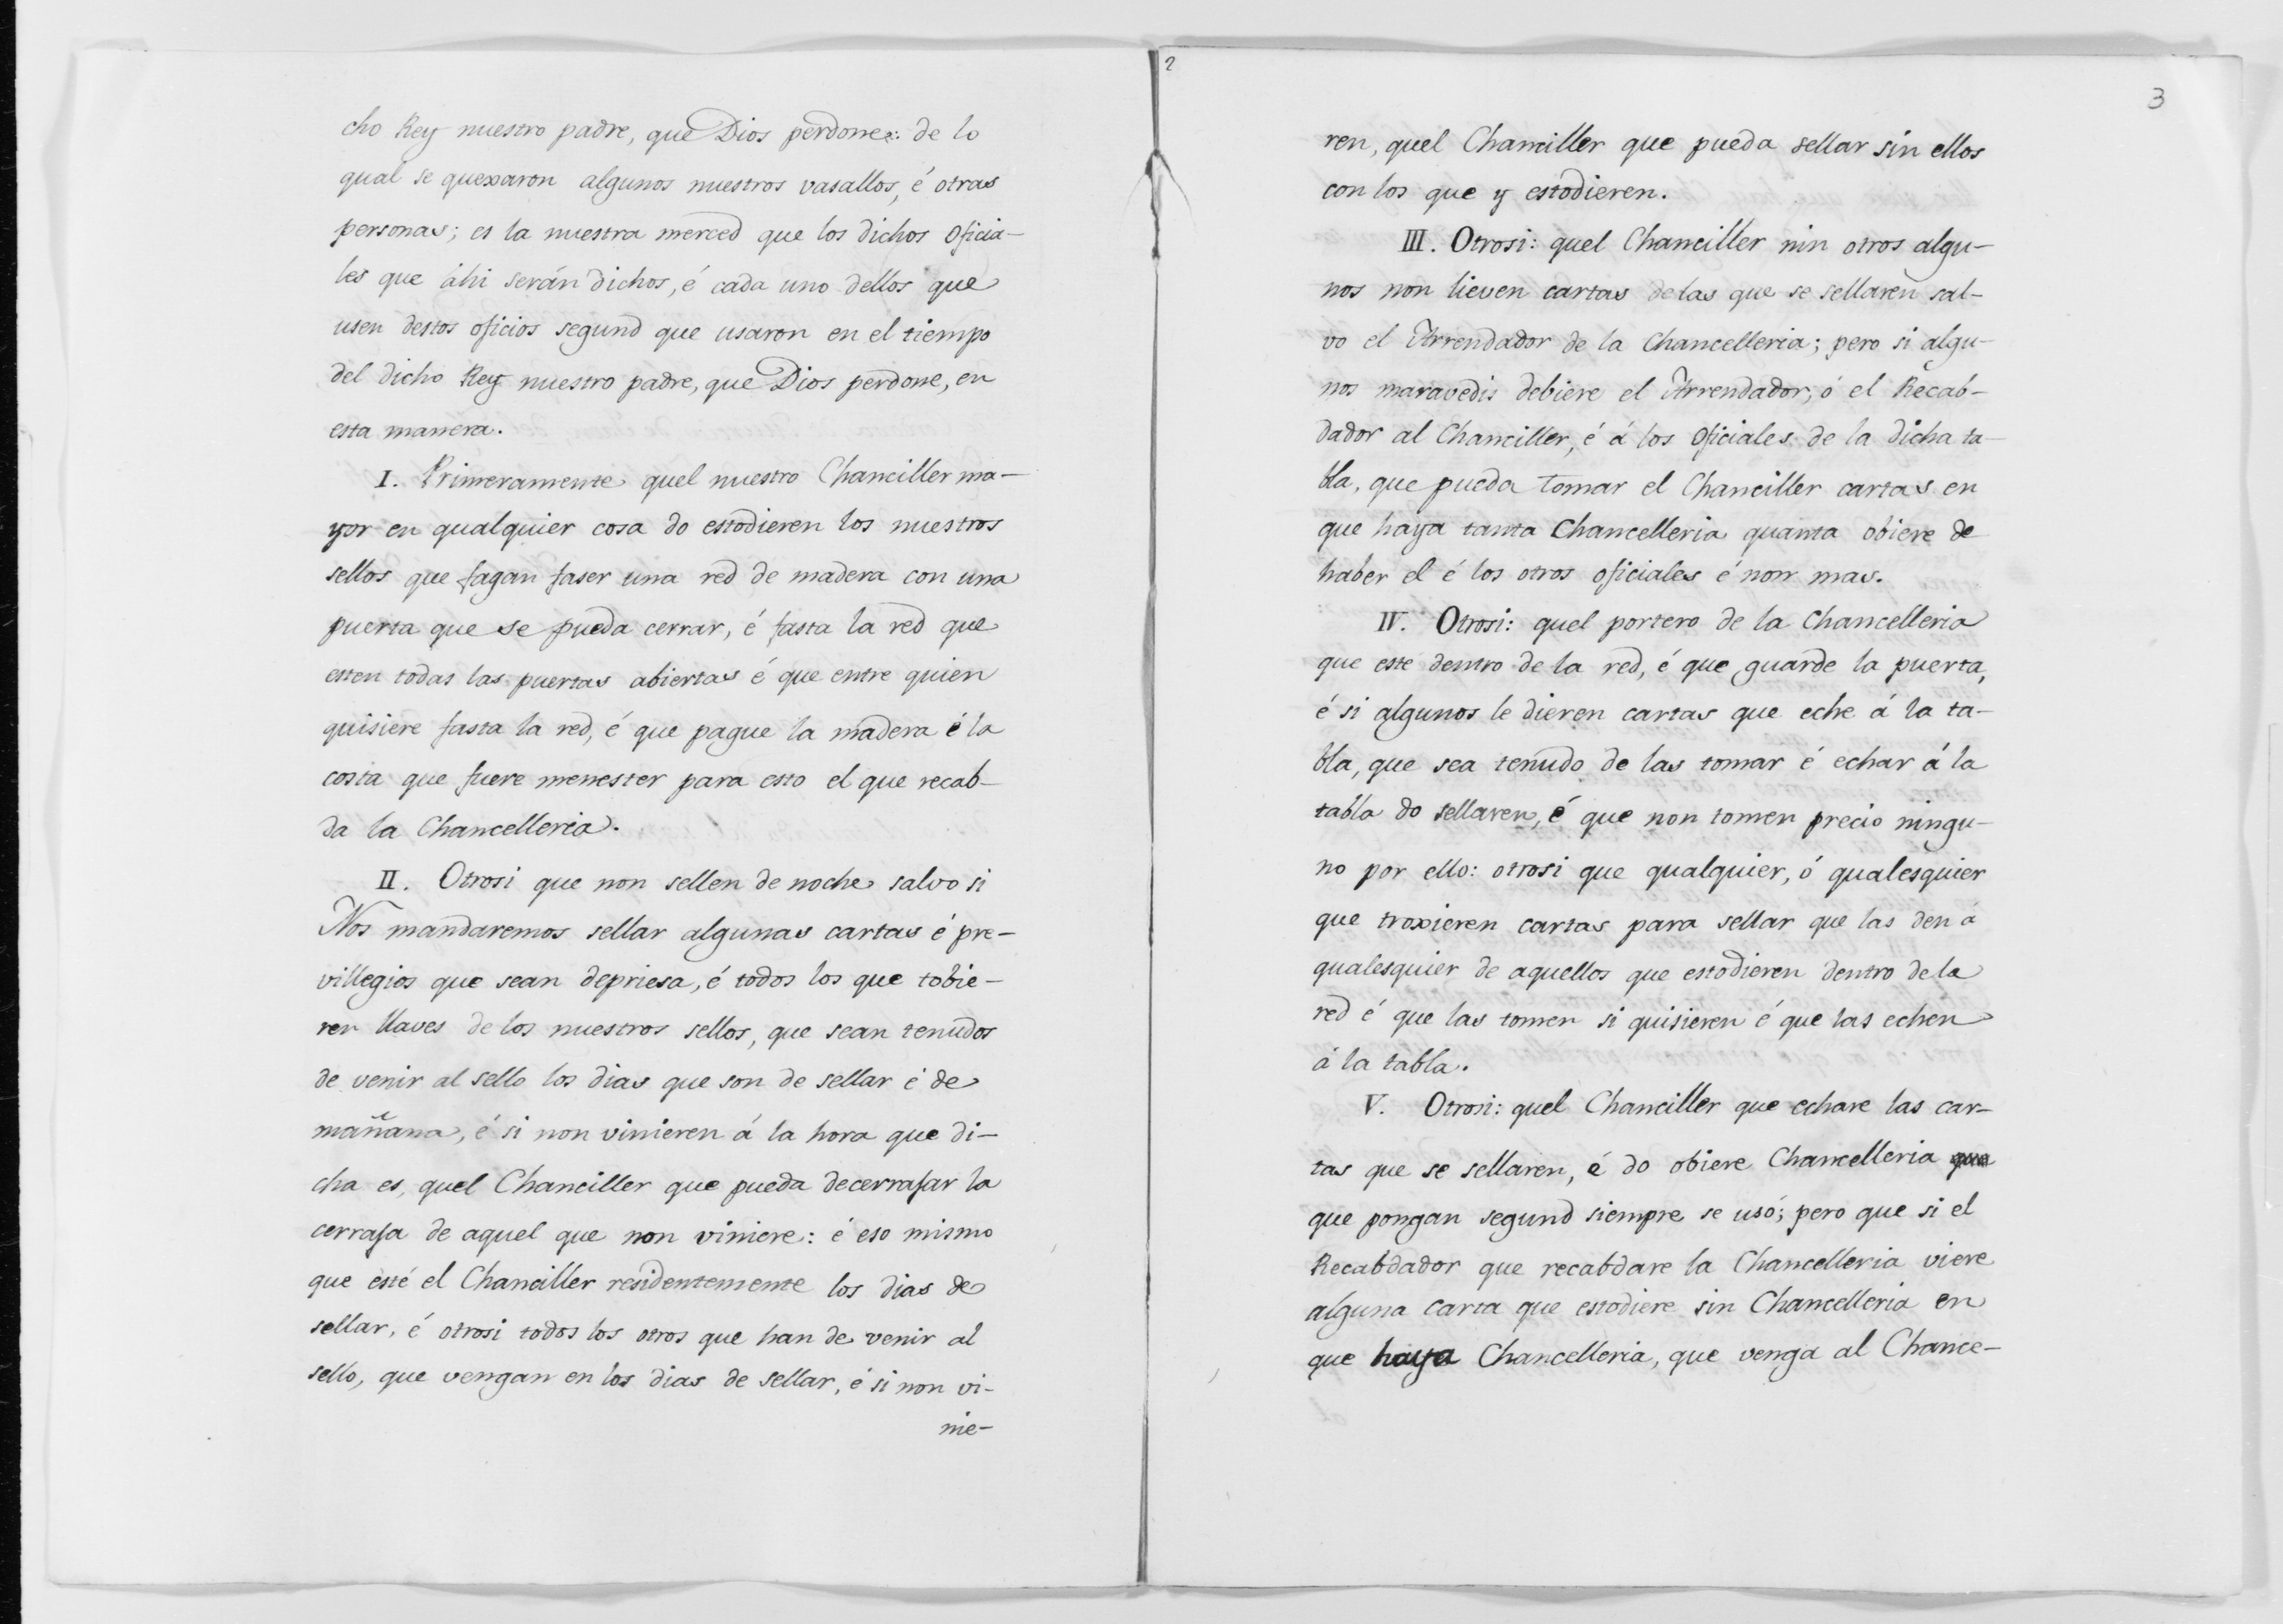 cho Rey nuestro padre, que Dios perdone: de lo
qual se quexaron algunos nuestros vasallos, é otras
personas; es la nuestra merced que los dichos Oficia-
les que áhi serán dichos, é cada uno dellos que
usen destos oficios segund que usaron en el tiempo
del dicho Rey nuestro padre, que Dios perdone, en
esta manera.
I. Primeramente quel nuestro Chanciller ma-
yor en qualquier cosa do estodieren los nuestros
sellos que fagan faser una red de madera con una
puerta que se pueda cerrar, é fasta la red que
esten todas las puertas abiertas é que entre quien
quisiere fasta la red, é que pague la madera é la
costa que fuere menester para esto el que recab-
da la Chancelleria.
II. Otrosi que non sellen de noche salvo si
Nos mandaremos sellar algunas cartas é pre-
villegios que sean depriesa, é todos los que tobie-
ren llaves de los nuestros sellos, que sean tenudos
de venir al sello los dias que son de sellar é de
mañana, é si non vinieren á la hora que di-
cha es, quel Chanciller que pueda decerrajar la
cerraja de aquel que non viniere: é eso mismo
que esté el Chanciller residentemente los dias de
sellar, é otrosi todos los otros que han de venir al
sello, que vengan en los dias de sellar, é si non vi-
nie-
2
3
ren, quel Chanciller que pueda sellar sin ellos
con los que y estodieren.
III. Otrosi: quel Chanciller nin otros algu-
nos non lieven cartas de las que se sellaren sal-
vo el Arrendador de la Chancelleria; pero si algu-
nos maravedis debiere el Arrendador, ó el Recab-
dador al Chanciller, é á los Oficiales de la dicha ta-
bla, que pueda tomar el Chanciller cartas en
que haya tanta Chancelleria quanta obiere de
haber el é los otros oficiales é non mas.
IV. Otrosi: quel portero de la Chancelleria
que esté dentro de la red, é que guarde la puerta,
é si algunos le dieren cartas que eche á la ta-
bla, que sea tenudo de las tomar é echar á la
tabla do sellaren, é que non tomen precio ningu-
no por ello: otrosi que qualquier, ó qualesquier
que troxieren cartas para sellar que las den á
qualesquier de aquellos que estodieren dentro de la
red é que las tomen si quisieren é que las echen
á la tabla.
V. Otrosi: quel Chanciller que echare las car-
tas que se sellaren, é do obiere Chancelleria que
que pongan segund siempre se usó; pero que si el
Recabdador que recabdare la Chancelleria viere
alguna carta que estodiere sin Chancelleria en
que haya Chancelleria, que venga al Chance-